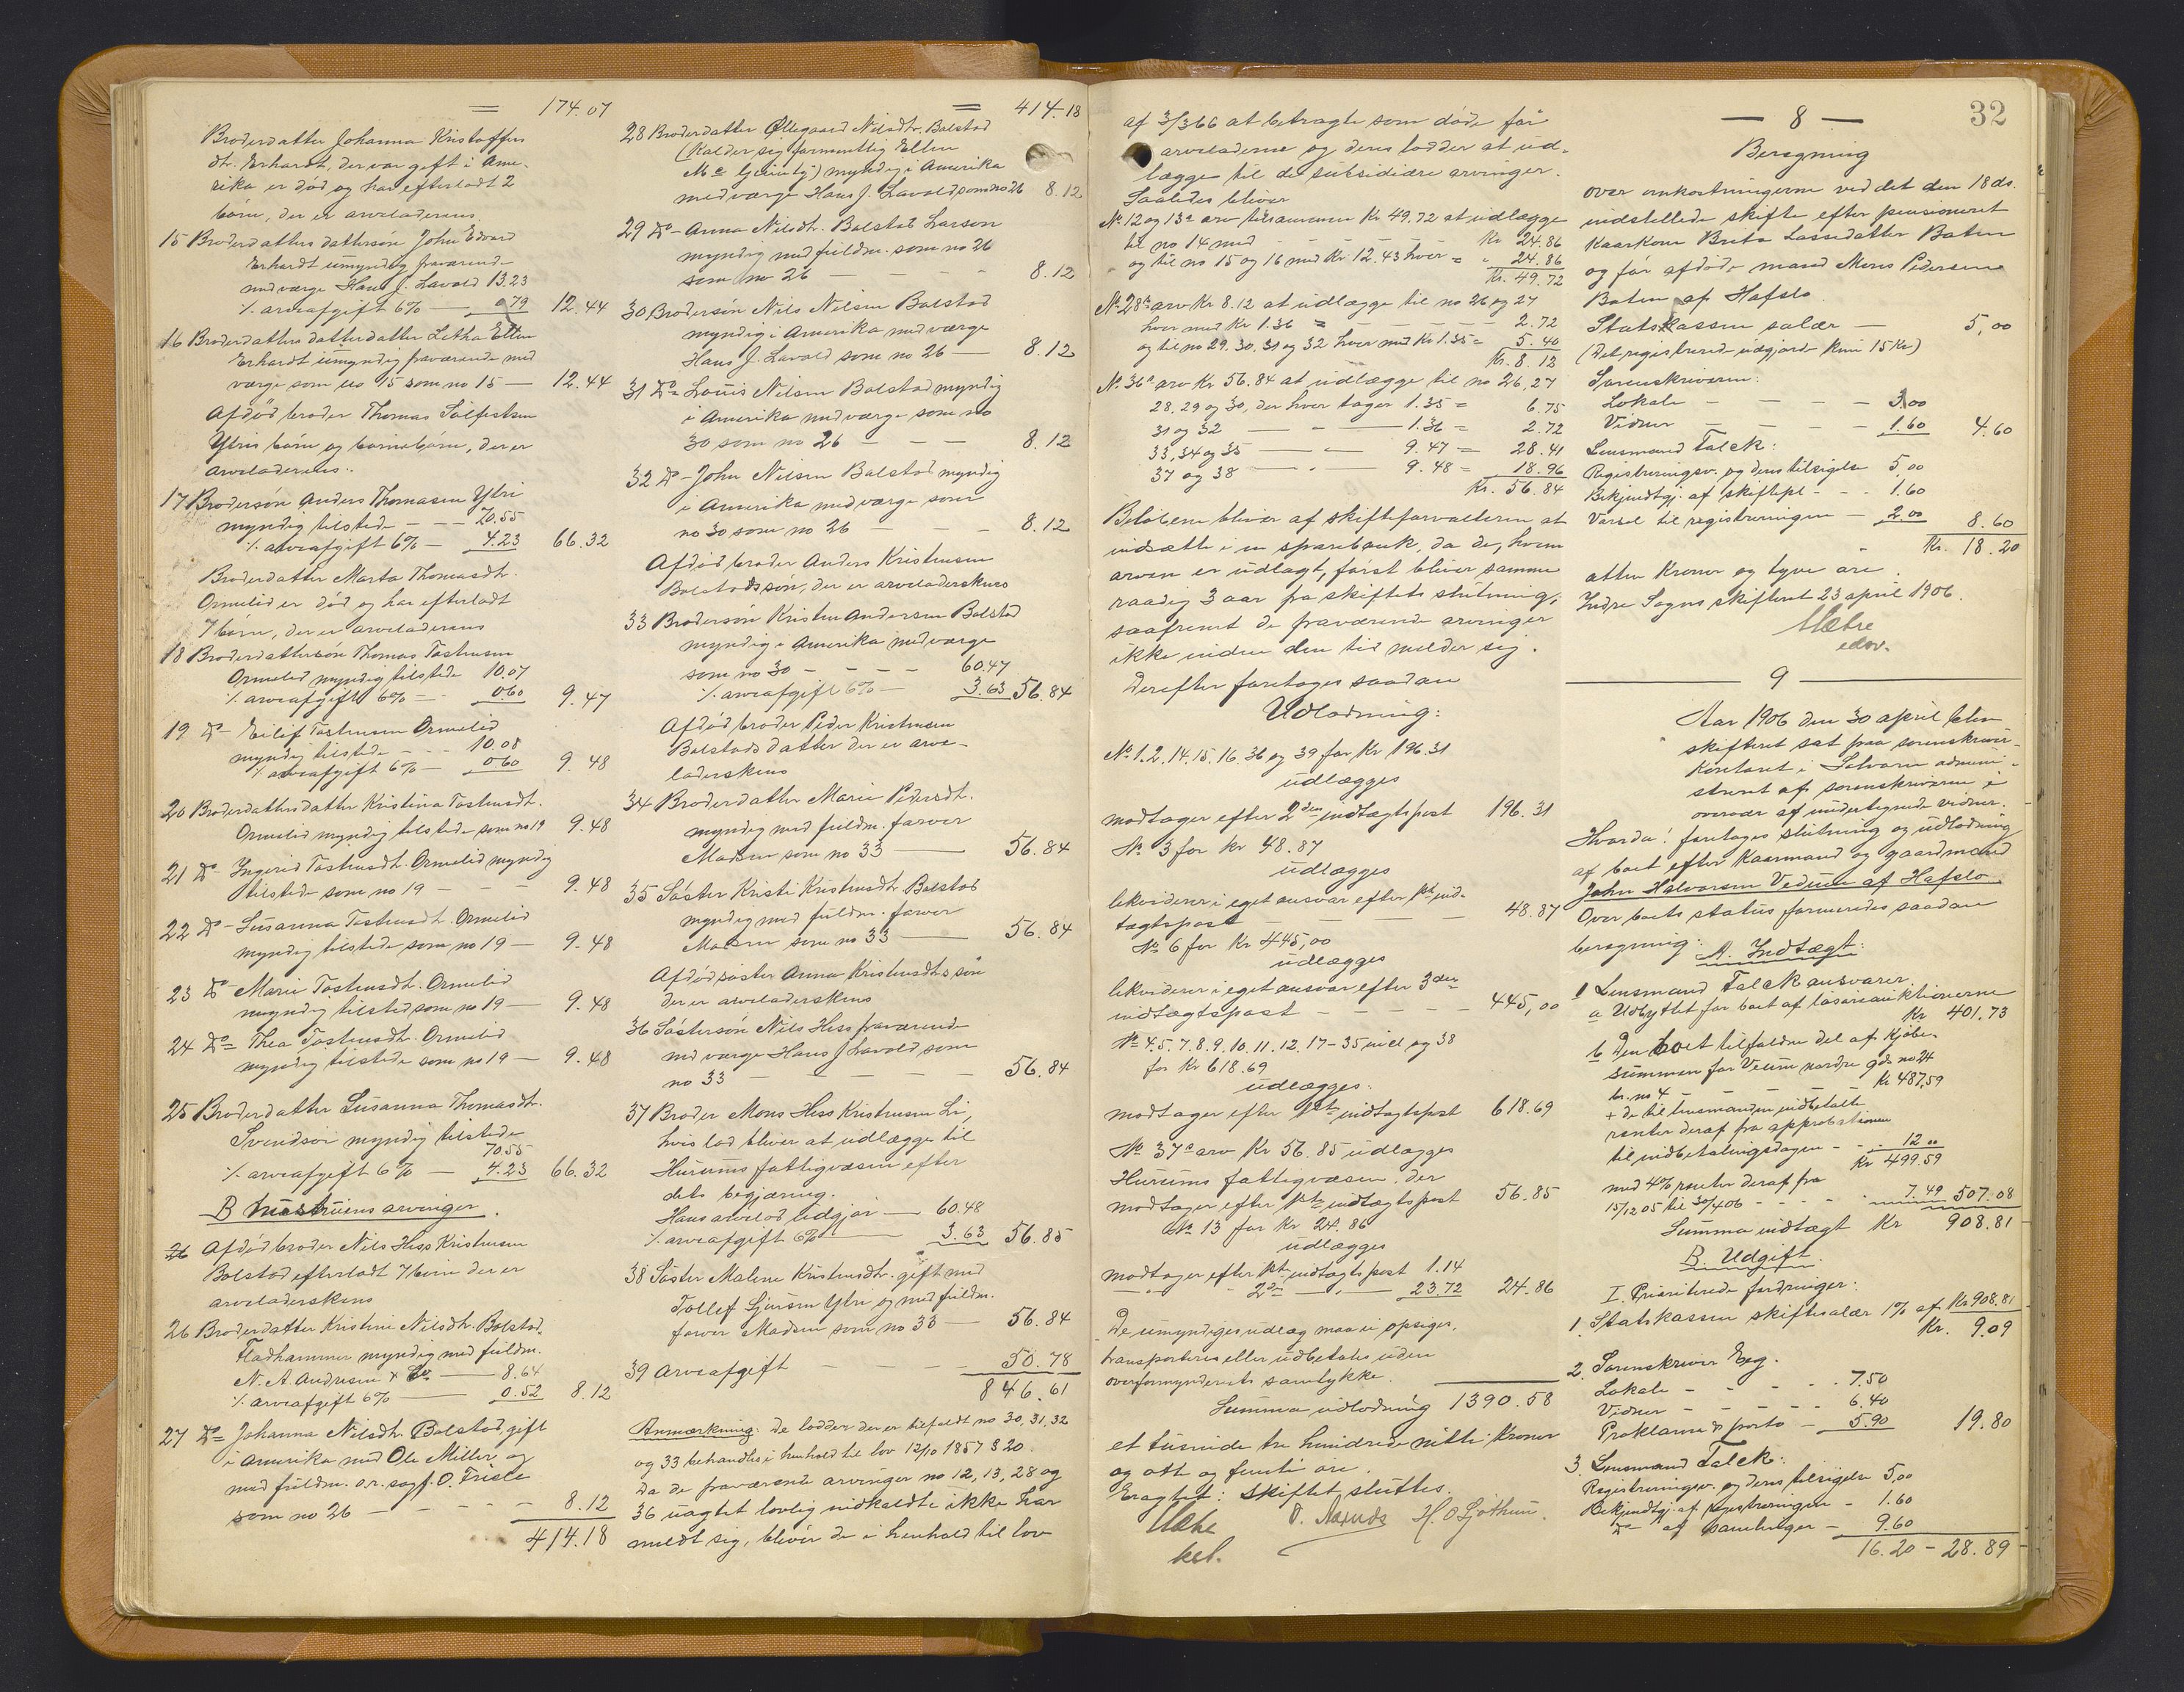 = 174.07
Broderdatter Johanna Kristoffers
dtr. Erhardt, der var gift i Ame-
rika er död og har efterladt 2
börn, der er arveladerens.
15 Broderdatters dattersön John Edvard
Erhardt umyndig fraværende
med værge Hans J. Lavold 13.23
÷ arveafgift 6% — 0.79 12.44
16 Broderdatters datterdatter Letha Ellen
Erhardt umyndig fraværende med
værge som no 15 som no 15 — 12.44
Afdöd broder Thomas Sölfestsen
Ytris börn og börnebörn, der er
arveladerens..
17 Brodersön Anders Thomasen Ytri
myndig tilstede - - - 70.55
÷ arveafgift 6% — 4.23 66.32
Broderdatter Marta Thomasdtr.
Ormelid er död og har efterladt
7 börn, der er arveladerens
18 Broderdattersön Thomas Tostensen
Ormelid myndig tilstede 10.07
÷ arveafgift 6% — 0.60 9.47
19 Do - Eilif Tostensen Ormelid
myndig tilstede - - - 10.08
÷ arveafgift 6% — 0.60 9.48
20 Broderdatters datter Kristina Tostensdtr.
Ormelid myndig tilstede som no 19 9.48
21 Do - Ingerid Tostensdtr. Ormelid myndig
tilstede som no 19 - - - 9.48
22 Do - Susanna Tostensdtr. Ormelid
myndig tilstede som no 19 — 9.48
23 Do - Marie Tostensdtr. Ormelid
myndig tilsted som no 19 — 9.48
24 Do - Thea Tostensdtr. Ormelid
myndig tilstede som no 19 — 9.48
25 Broderdatter Susanna Thomasdtr.
Svendsöi myndig tilstede
70.55
÷ arveafgift 6% — 4.23 66.32
B Mustruens arvinger.
26 Afdöd broder Nils Hess Kristensen
Bolstad efterlodt 7 börn der er
arveladerskens
26 Broderdatter Kristine Nilsdtr. Bolstad.
Fladhammer myndig med fuldm.
N. A. Andresen & Co. — 8.64
÷ arveafgift 6% — 0.52 8.12
27 Do - Johanna Nilsdtr. Bolstad, gift
i Amerika med Ole Miller, og
med fuldm. o.r. sagf. O. Friele
som no 26 — - - - 8.12
414.18
= 414.18
28 Broderdatter Øllegaard Nilsdtr. Bolstad
(Kalder sig formentlig Ellen
Mc) myndig i Amerika
med værge Hans J. Lavold som no 26 8.12
29 Do - Anna Nilsdtr. Bolstad Larson
myndig med fuldm. som no 26
som no 26 — - - - 8.12
30 Brodersön Nils Nilsen Bolstad
myndig i Amerika med værge
Hans J. Lavold som no 26 — 8.12
31 Do - Louis Nilsen Bolstad myndig
i Amerika med værge som no
30 som no 26 — - - 8.12
32 Do - John Nilsen Bolstad myndig
i Amerika med værge som
no 30 som no 26 - - - 8.12
Afdöd broder Anders Kristensen
Bolstads sön, der er arveladerskens
33 Brodersön Kristen Andersen Bolstad
myndig i Amerika med værge
som no 30 - - - - 60.47
÷ arveafgift 6% — 3.63 56.84
Afdöd broder Peder Kristensen
Bolstads datter der er arve-
laderskens
34 Broderdatter Marie Pedersdtr.
myndig med fuldm. farver
Madsen som no 33 — 56.84
35 Söster Kristi Kristensdtr. Bolstad
myndig med fuldm. farver
Madsen som no 33 — 56.84
Afdöd söster Anna Kristensdtrs sön
der er arveladerskens
36 Söstersön Nils Hess fraværende
med værge Hans J Lavold som
no 33 — - - - 56.84
37 Broder Mons Hess Kristensen Li,
hvis lod bliver at udlægge til
Hurums fattigvæsen efter
dets begjæring.
Hans arvelod udgjör — 60.48
÷ arveafgift 6% — 3.63 56.85
38 Söster Malene Kristensdtr. gift med
Tollef Sjursen Ytri og med fuldm.
farver Madsen som no 33 — 56.84
39 Arveafgift — - - - 50.78
846.61
Anmærkning: De lodder der er tilfaldt no 30, 31, 32
og 33 behandles i henhold til lov 12/10 1857 § 20.
Da de fraværende arvinger no 12, 13, 28 og
36 uagtet lovlig indkaldte ikke har
meldt sig, bliver de i henhold til lov
af 3/3 66 at betragte som döde för
arveladerne og deres lodder at ud-
lægge til de subsidiære arvinger.
Saaledes bliver
No. 12 og 13s arv tilsammen Kr 49.72 at udlægge
til no 14 med - - - - - Kr 24.86
og til no 15 og 16 med Kr. 12.43 hver = " 24.86
Kr. 49.72
No. 28s arv Kr 8.12 at udlægge til no 26 og 27
hver med Kr 1.36 = - - - 2.72
og til no 29. 30. 31 og 32 hver med Kr 1.35 = 5.40
Kr. 8.12
No. 36s arv Kr 56.84 at udlægge til no 26, 27
28, 29 og 30, der hver tager 1.35 = 6.75
31 og 32 — " — 1.36 = 2.72
33, 34 og 35 — " — 9.47 = 28.41
37 og 38 — " — 9.48 = 18.96
Kr. 56.84
Belöbene bliver af skifteforvalteren at
indsætte i en sparebank, da de, hvem
arven er udlagt, först bliver samme
raadig 3 aar fra skiftets slutning,
saafremt de fraværende arvinger
ikke inden den tid melder sig.
Derefter foretages saadan
Udlodning:
No. 1. 2. 14. 15. 16. 36 og 39 for Kr 196.31
udlægges
modtager efter 2den indtægtspost 196.31
No. 3 for Kr 48.87
udlægges
likviderer i eget ansvar efter 1ste ind-
tægtspost — - - - 48.87
No 6 for Kr 445,00
udlægges
likviderer i eget ansvar efter 3die
indtægtspost - - - - - 445,00
No. 4. 5. 7. 8. 9. 10. 11. 12. 17 - 35 incl og 38
for Kr 618.69
udlægges:
modtager efter 1ste indtægtspost 618.69
No. 37s arv Kr 56.85 udlægges
Hurums fattigvæsen, der
modtager efter 1ste indtægtspost 56.85
No 13 for Kr 24.86
udlægges
modtager efter 1ste indtægtspost 1.14
— " — 2den — " — 23.72 24.86
De umyndiges udlæg maa ei opsiges,
transporteres eller udbetales uden
overformynderiets samtykke.
Summa udlodning 1390.58
et tusinde tre hundrede nitti Kroner
og otte og femti öre.
Eragtet: Skiftet sluttes.
kst.
32
— 8 —
Beregning
over omkostningerne ved det den 18 ds.
indstillede skifte efter pensioneret
Kaarkone Brita Lassedatter Baten
og för afdöde mand Mons Pedersen
Baten af Hafslo
Statskassen salær — 5,00
(Det registrerede udgjorde Kun 15 Kr)
Sorenskriveren:
Lokale - - - - 3,00
Vidner - - - - 1.60 4.60
Lensmand Falck:
Registreringsv. og dens tilsigelse 5,00
Bekjendtgj. af skiftepl - - - 1.60
Varsel til registreringen — 2.00 8.60
Kr. 18.20
atten Kroner og tyve öre.
Indre Sogns skifteret 23 april 1906.
edsv.
9
Aar 1906 den 30 april blev
skifteret sat paa sorenskriver-
kontoret i Solvorn admini-
streret af sorenskriveren i
overvær af undertegnede vidner.
Hvorda! foretages slutning og udlodning
af boet efter Kaarmand og gaardmand
John Halvorsen Vedum af Hafslo
Over boets status formeredes saadan
beregning:
A. Indtægt:
1 Lensmand Falck ansvarer
a Udbyttet for boet af lösöreauktionerne
Kr 401.73
b Den boet tilfaldne del af Kjöbe-
summen for Veum nordre gds no 24
br. no 4 - - - - Kr 487,59
+ de til lensmanden indbetalte
renter deraf fra approbationen
til indbetalingsdagen - - - 12.00
Kr 499.59
med 4% renter deraf fra
15/12 05 til 30/4 06 - - - - 7.49 507.08
Summa indtægt Kr 908.81
B. Udgift.
I. Prioriterede fordringer:
1. Statskassen skiftesalær 1% af Kr 908.81
Kr. 9.09
2. Sorenskriver
Lokale - - - - - 7.50
Vidner - - - - - 6.40
Proklama & porto — 5.90 19.80
3. Lensmand Falck:
Registreringsv. og dens tilsigelse 5,00
Bekjendtgj. af registreringen - 1.60
Do - af samlinger — 9.60
16.20 - 28.89